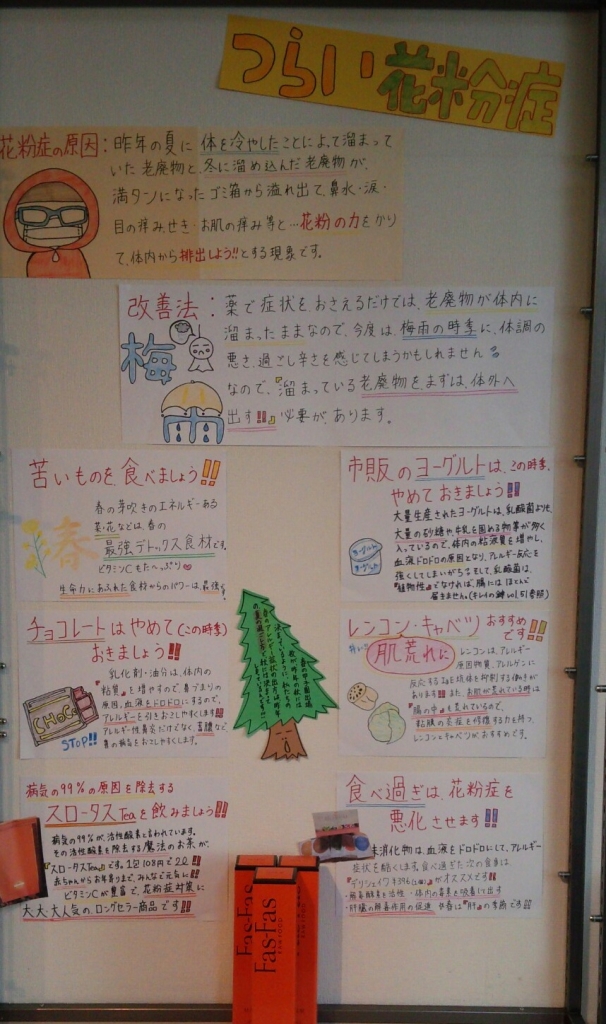 つらい花粉症
花粉症の原因：昨年の夏に体を冷やしたことによって溜まって
いた老廃物と、冬に溜め込んだ老廃物が、
満タンになったゴミ箱から溢れ出て、鼻水・涙・
目の痒み、せき・お肌の痒み等と…花粉の力をかり
て、体内から排出しよう!!とする現象です。
改善法：薬で症状をおさえるだけでは、老廃物が体内に
溜まったままなので、今度は、梅雨の時季に、体調の
悪さ、過ごし辛さを感じてしまうかもしれません
なので、『溜まっている老廃物をまずは、体外へ
出す!!』必要があります。
梅
雨
苦いものを食べましょう!!
春の芽吹きのエネルギーある
菜の花などは、春の
最強デトックス食材です。
ビタミンCもたーっぷり
生命力にあふれた食材からのパワーは、最強
春
市販のヨーグルトは、この時季、
やめておきましょう!!
大量生産されたヨーグルトは、乳酸菌よりも、
大量の砂糖や牛乳を固める物等が多く
入っているので、体内の粘液質を増やし、
血液ドロドロの原因となり、アレルギー反応を
強くしてしまいがち
『植物性』でなければ、腸にはほとんど
届きません。
ヨーグルト
ヨーグルト
チョコレートはやめて(この時季)
おきましょう!!
乳化剤・油分は、体内の
"粘質"を増やすので、鼻づまりの
原因、血液をドロドロにするので、
アレルギーを引きおこしやすくします!!
アレルギー性鼻炎だけでなく、蓄膿など
鼻の病気をおこしやすくします。
CHOC
STOP!!
レンコン・キャベツおすすめ
です!!
特に
肌荒れに
レンコンは、アレルギー
原因物質、アレルゲンに
反応するIgE抗体を抑制する働きが
あります!!また、お肌が荒れている時は
『腸の中』も荒れているので、
粘膜の炎症を修復する力を持つ、
レンコンとキャベツがおすすめです。
病気の99%の原因を除去する
スロータスTeaを飲みましょう!!
病気の99%が、活性酸素と言われています。
その活性酸素を除去する魔法のお茶が、
『スロータスTea』です。1包108円で2ℓ
赤ちゃんからお年寄りまで、みんなで元気に
ビタミンCが豊富で、花粉症対策に
大大大人気のロングセラー商品です!!
食べ過ぎは、花粉症を
悪化させます!!
未消化物は、血液をドロドロにして、アレルギー
症状を酷くします。食べ過ぎた次の食事は、
がオススメです
・解毒酵素を活性・体内の毒素を吸着して出す
・肝臓の解毒作用の促進 *春は『肝』の季節です
Fas-Fas
Fas-Fas